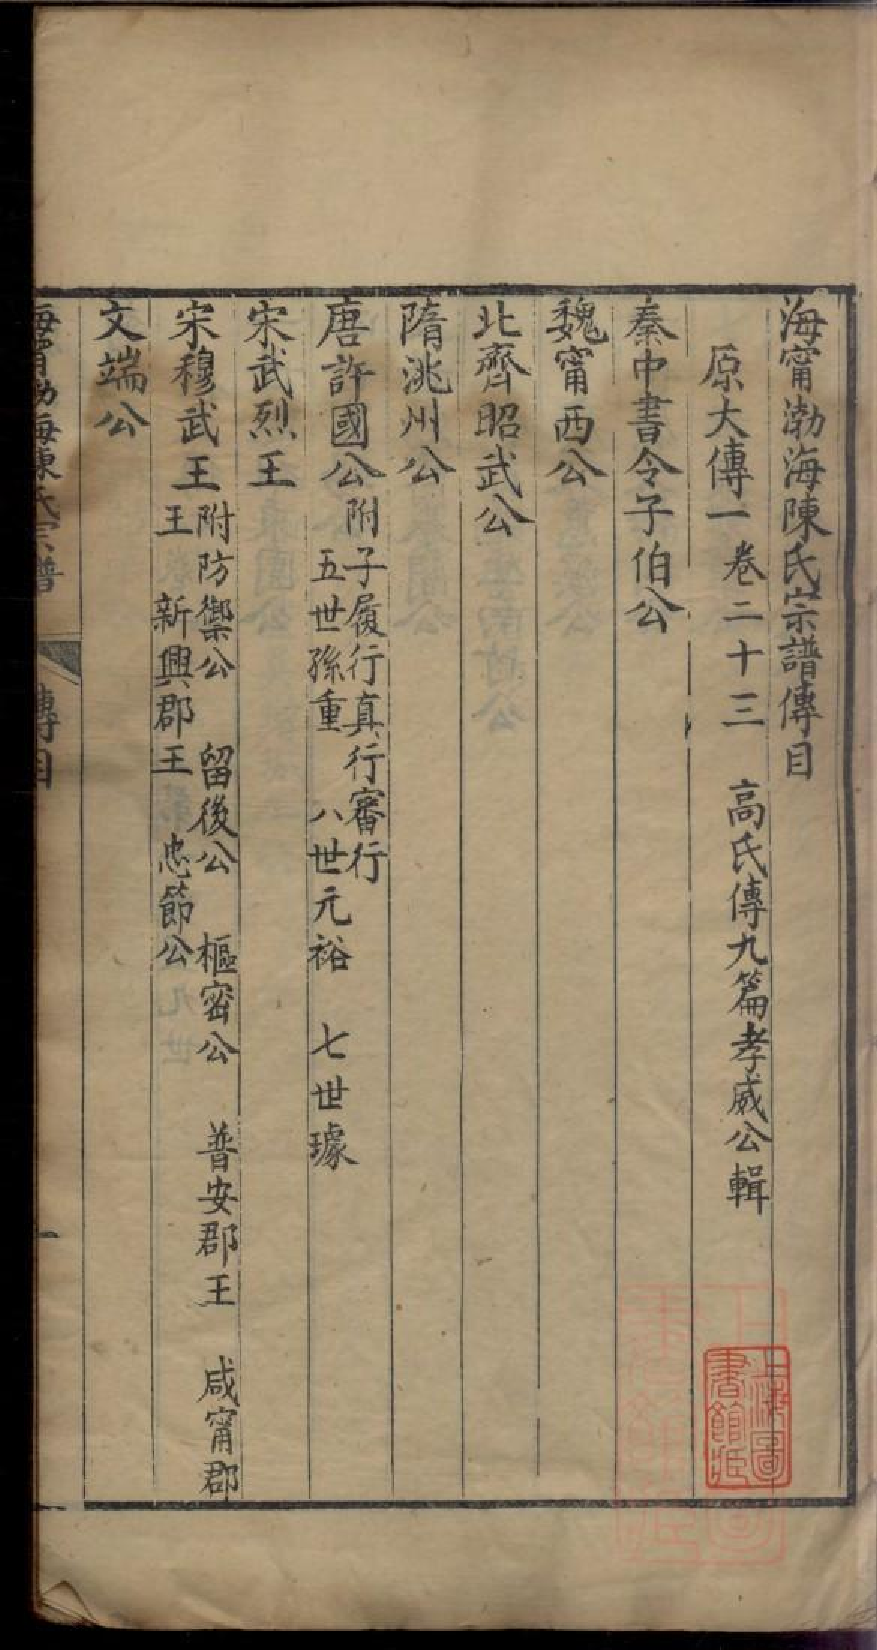 海甯渤海陳氏宗譜傳目
原大傳一 卷二十三 高氏傳九篇孝威公輯
秦中書令子伯公
魏甯西公
北齊昭武公
隋洮州公
唐許國公 附子履行真行審行
五世孫重 八世元裕 七世璩
宋武烈王
宋穆武王 附防禦公 留後公 樞密公 普安郡王 咸甯郡
王 新興郡王 忠節公
文端公
海甯渤海陳氏宗譜 傳目 一
上海圖書館藏